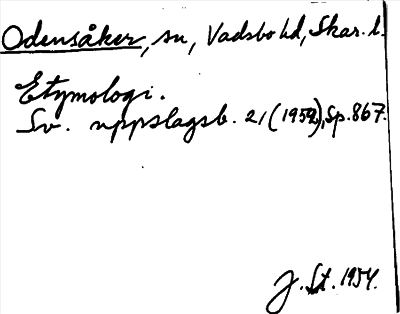 Odensåker, sn, Vadsbo hd, Skar. l.
Etymologi.
Sv. uppslagsb. 21 (1952), sp. 867.
J. St. 1954.